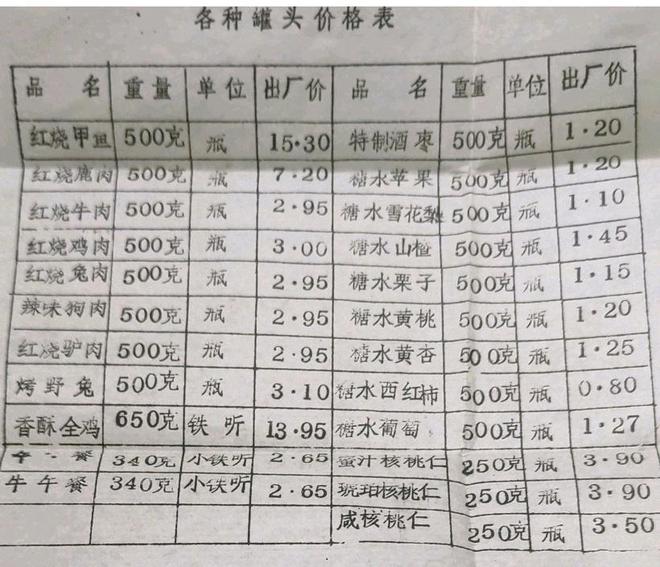 各种罐头价格表
品 名 重量 单位 出厂价 品 名 重量 单位 出厂价
红烧甲鱼 500克 瓶 15·30 特制酒枣 500克 瓶 1·20
红烧鹿肉 500克 瓶 7·20 糖水苹果 500克 瓶 1·20
红烧牛肉 500克 瓶 2·95 糖水雪花梨 500克 瓶 1·10
红烧鸡肉 500克 瓶 3·00 糖水山楂 500克 瓶 1·45
红烧兔肉 500克 瓶 2·95 糖水栗子 500克 瓶 1·15
辣味狗肉 500克 瓶 2·95 糖水黄桃 500克 瓶 1·20
红烧驴肉 500克 瓶 2·95 糖水黄杏 500克 瓶 1·25
烤野兔 500克 瓶 3·10 糖水西红柿 500克 瓶 0·80
香酥全鸡 650克 铁听 13·95 糖水葡萄 500克 瓶 1·27
餐 340克 小铁听 2·65 蜜汁核桃仁 250克 瓶 3·90
牛午餐 340克 小铁听 2·65 琥珀核桃仁 250克 瓶 3·90
咸核桃仁 250克 瓶 3·50